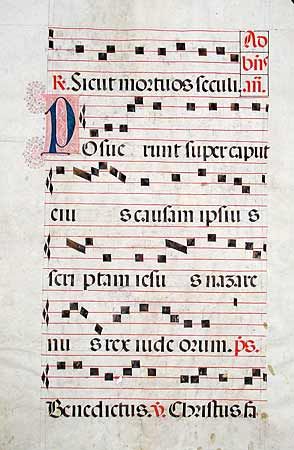 Ad
R. Sicut mortuos seculi. bñs añ.
Posue runt super caput
eiu s causam ipsiu s
scri ptam iesu s nazare
nu s rex iude orum. ps.
Benedictus. v. Christus fa